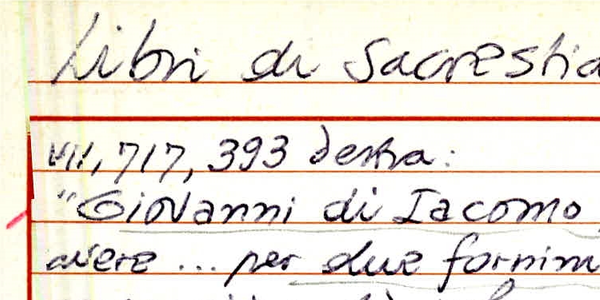 Libri di Sacrestia
VII, 717, 393 destra:
"Giovanni di Iacomo
avere ... per due fornim